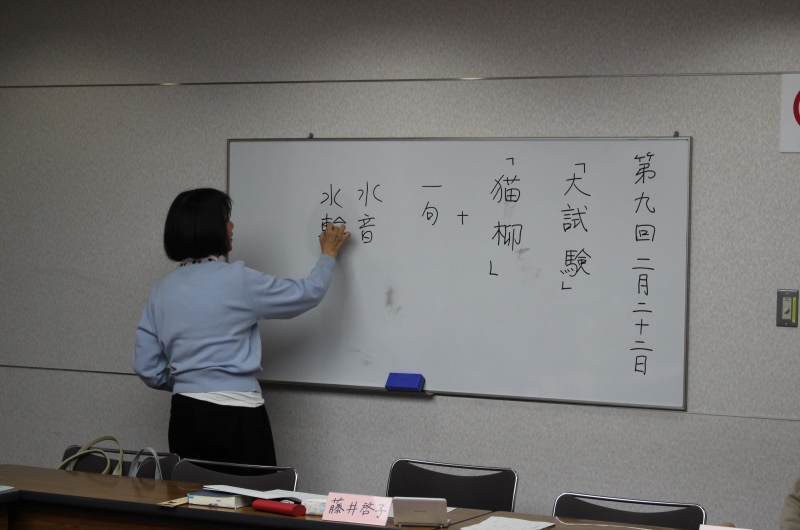 第九回 二月二十二日
「大試験」
「猫柳」
+
一句
水音
水輪
藤井啓子